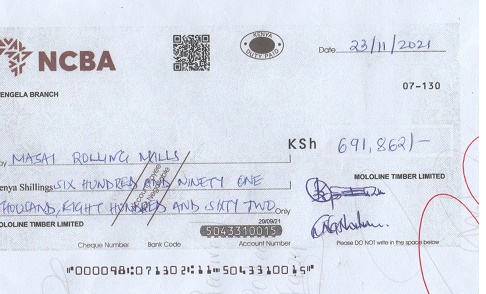 NCBA
KENYA
DUTY PAID
Date 23/11/2021
ENGELA BRANCH
07-130
ay MASAI ROLLING MILLS
KSh 691,862/-
enya Shillings SIX HUNDRED AND NINETY ONE
THOUSAND, EIGHT HUNDRED AND SIXTY TWO Only
Account Payee
Not Negotiable
MOLOLINE TIMBER LIMITED
MOLOLINE TIMBER LIMITED
20/09/21
5043310015
Cheque Number Bank Code Account Number
Please DO NOT write in the space below
"000098"071302"11 5043310015"